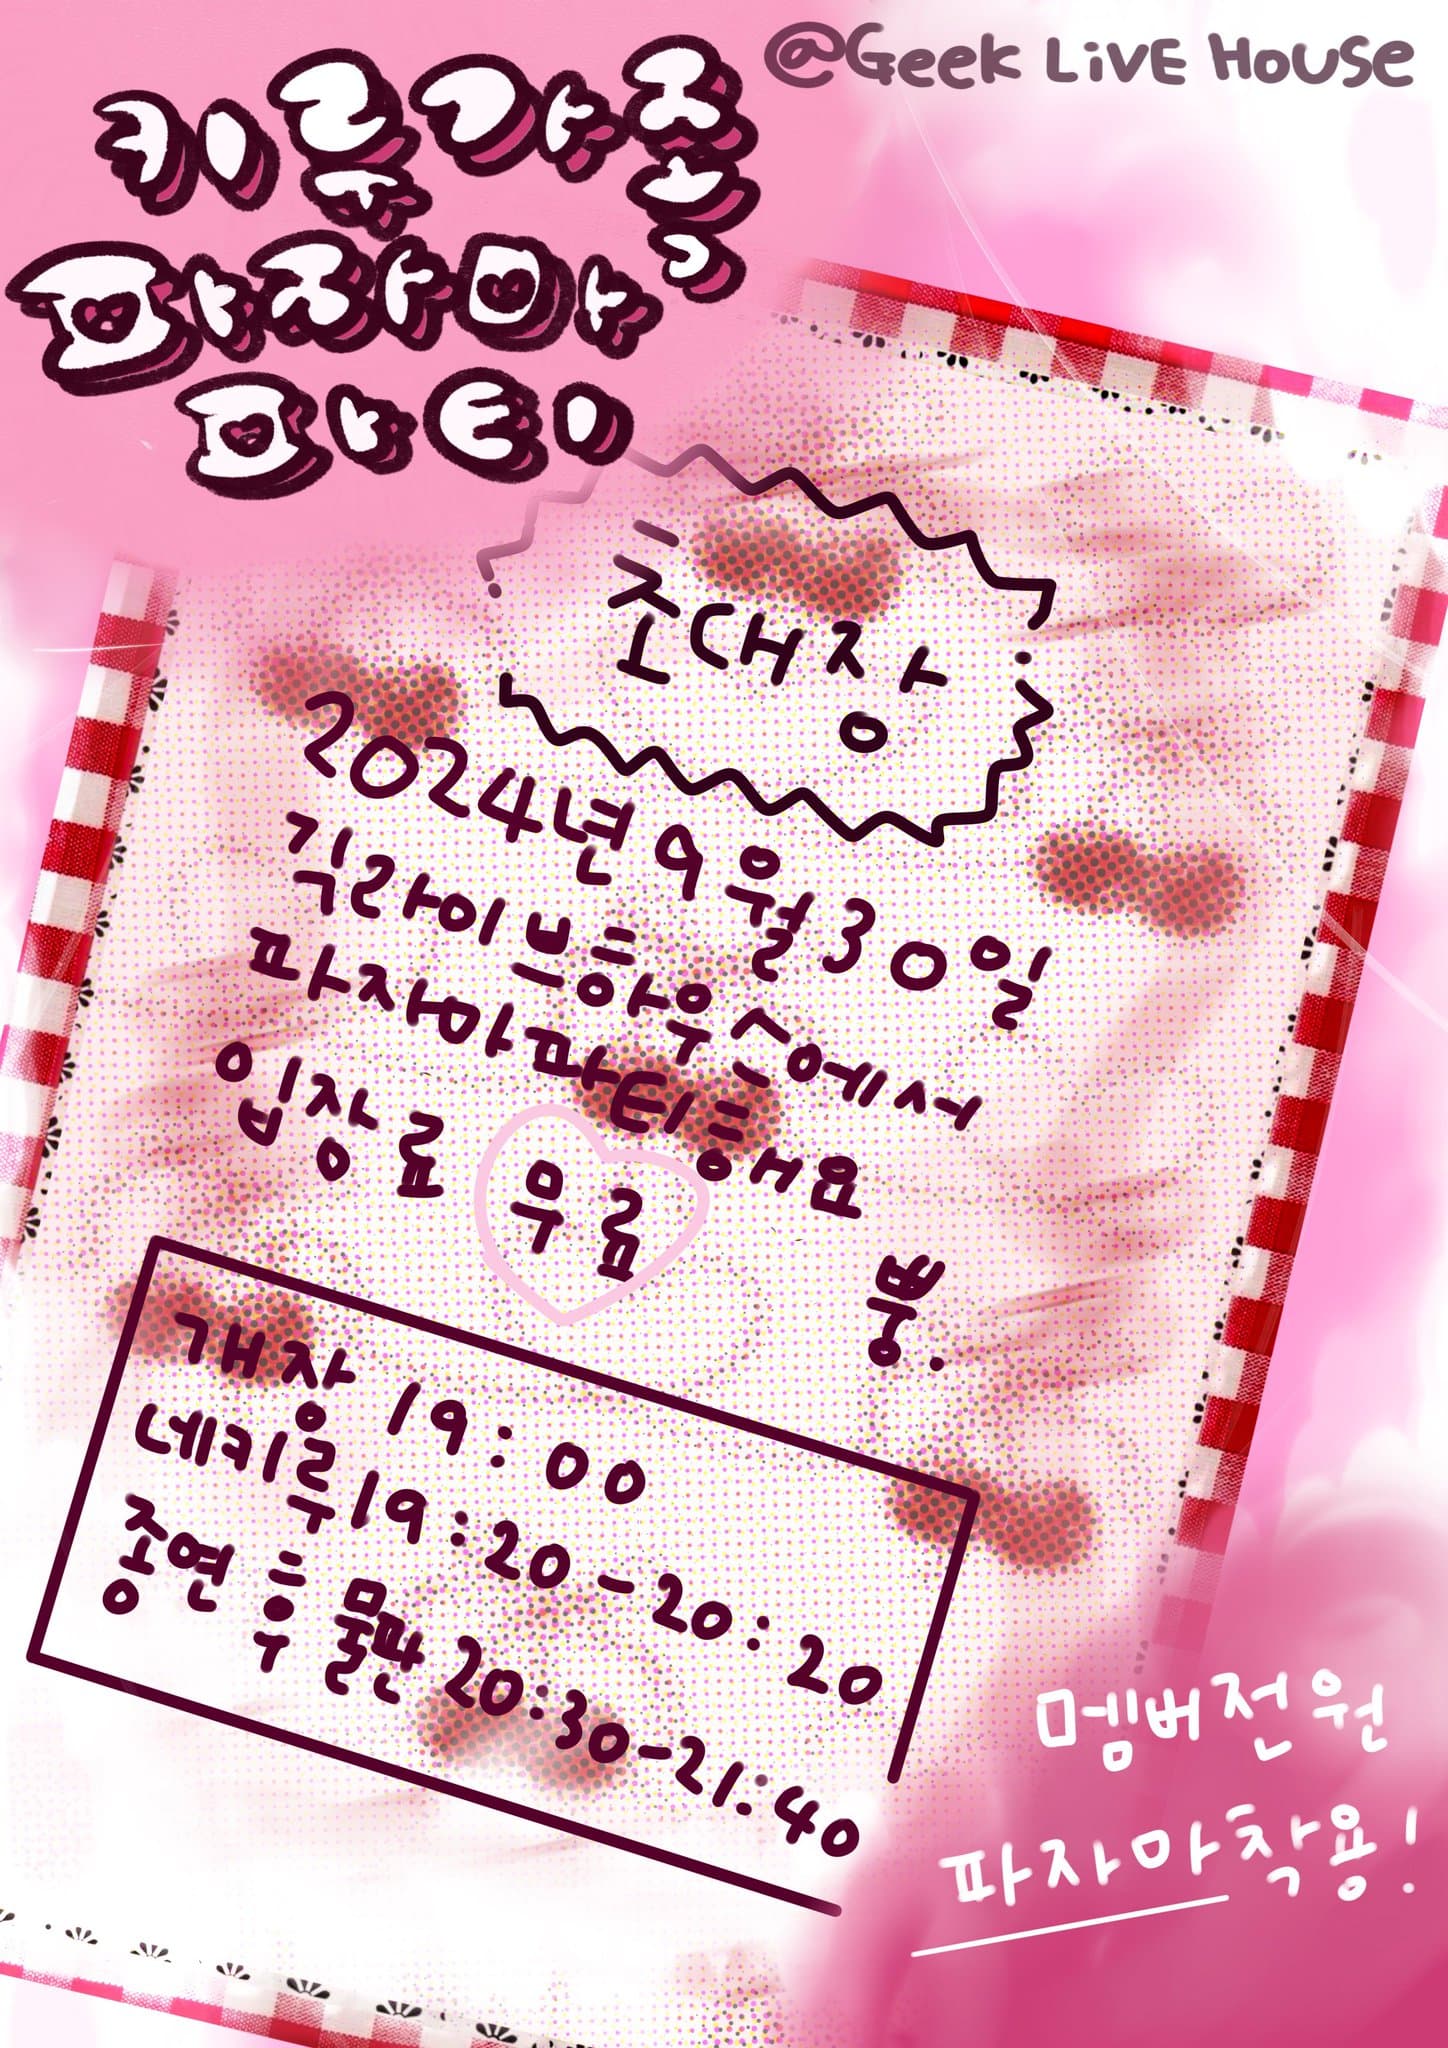 @Geek LiVE House
키루가죽
파자마
파티
초대장
2024년 9월 30일
긱라이브하우스에서
파자마파티를해요
입장료 무료
뿅.
개장 19:00
네키루 19:20-20:20
종연 후 물판 20:30-21:40
멤버전원
파자마착용!